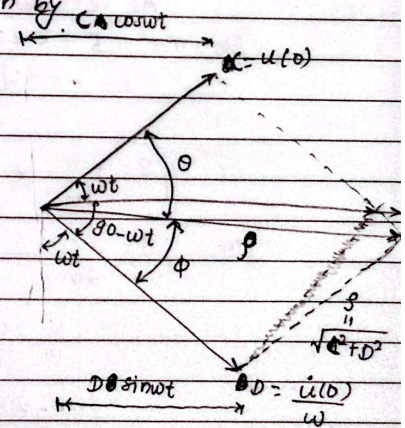 n by
C cosωt
C = u(0)
ωt
θ
90-ωt
ωt
φ
ρ
ρ
"
√C²+D²
D sinωt
D = u̇(0)
ω